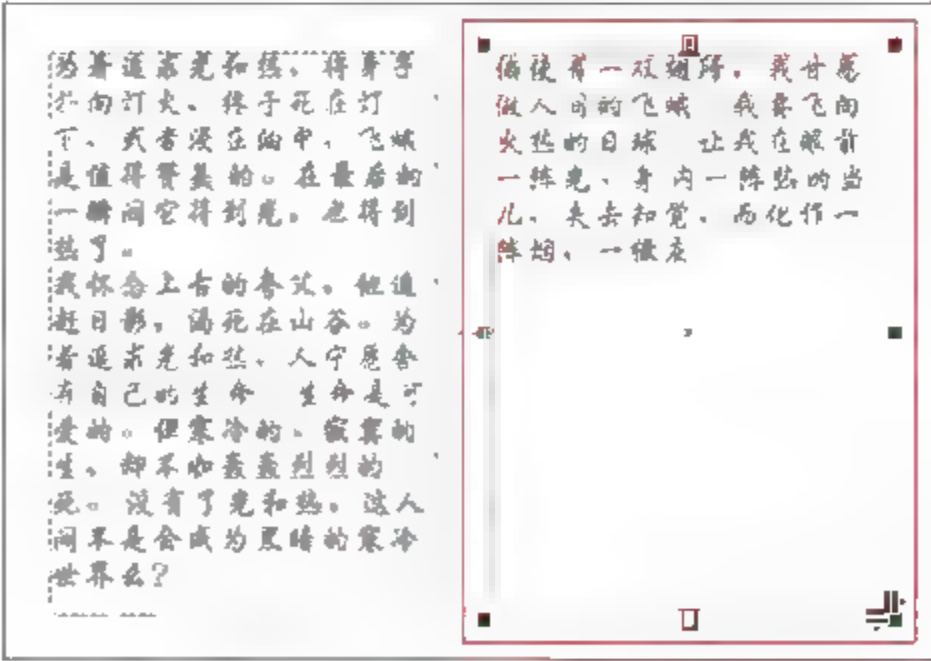 为着追求光和热、将身子
扑向灯火、终于死在灯
下、或者浸在油中、飞蛾
是值得赞美的。在最后的
一瞬间它得到光，也得到
热了。
我怀念上古的夸父，他追
赶日影，渴死在山谷。为
着追求光和热、人宁愿舍
弃自己的生命 生命是可
爱的。但寒冷的、寂寞的
生、却不如轰轰烈烈的
死。没有了光和热，这人
间不是会成为黑暗的寒冷
世界么？
倘使有一双翅膀，我甘愿
做人间的飞蛾 我要飞向
火热的日球 让我在眼前
一阵光、身内一阵热的当
儿，失去知觉，而化作一
阵烟，一撮灰